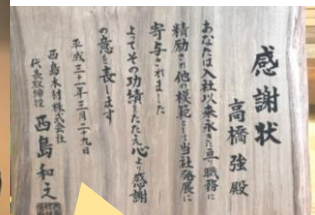 感謝状
高橋強殿
あなたは入社以来永きに亘り職務に
精励され他の模範として当社発展に
寄与されました
よってその功績をたたえ心より感謝
の意を表します
平成三十一年三月二十九日
西島木材株式会社
代表取締役 西島和文